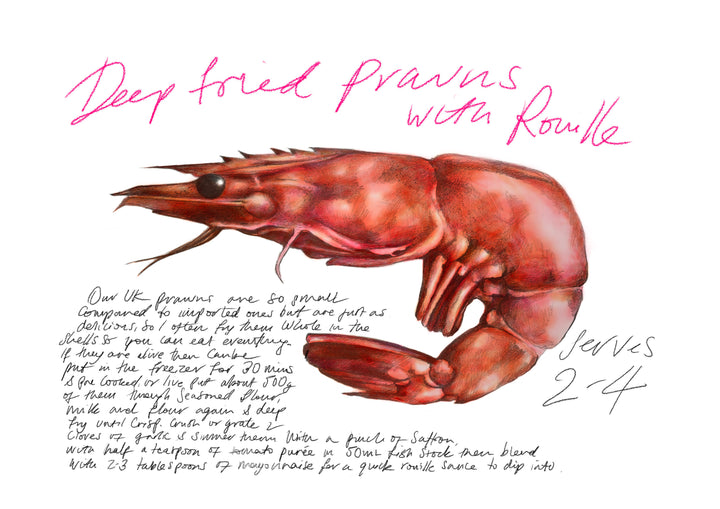 Deep fried Prawns
with Rouille
Our UK prawns are so small
compared to imported ones but are just as
delicious, so I often fry them whole in the
shells so you can eat everything.
If they are alive then can be
put in the freezer for 30 mins
& pre cooked or live put about 500g
of them through seasoned flour,
milk and flour again & deep
fry until crisp. Crush or grate 2
cloves of garlic & simmer them with a pinch of saffron,
with half a teaspoon of tomato purée in 50ml fish stock then blend
with 2-3 tablespoons of mayonnaise for a quick rouille sauce to dip into.
Serves
2-4